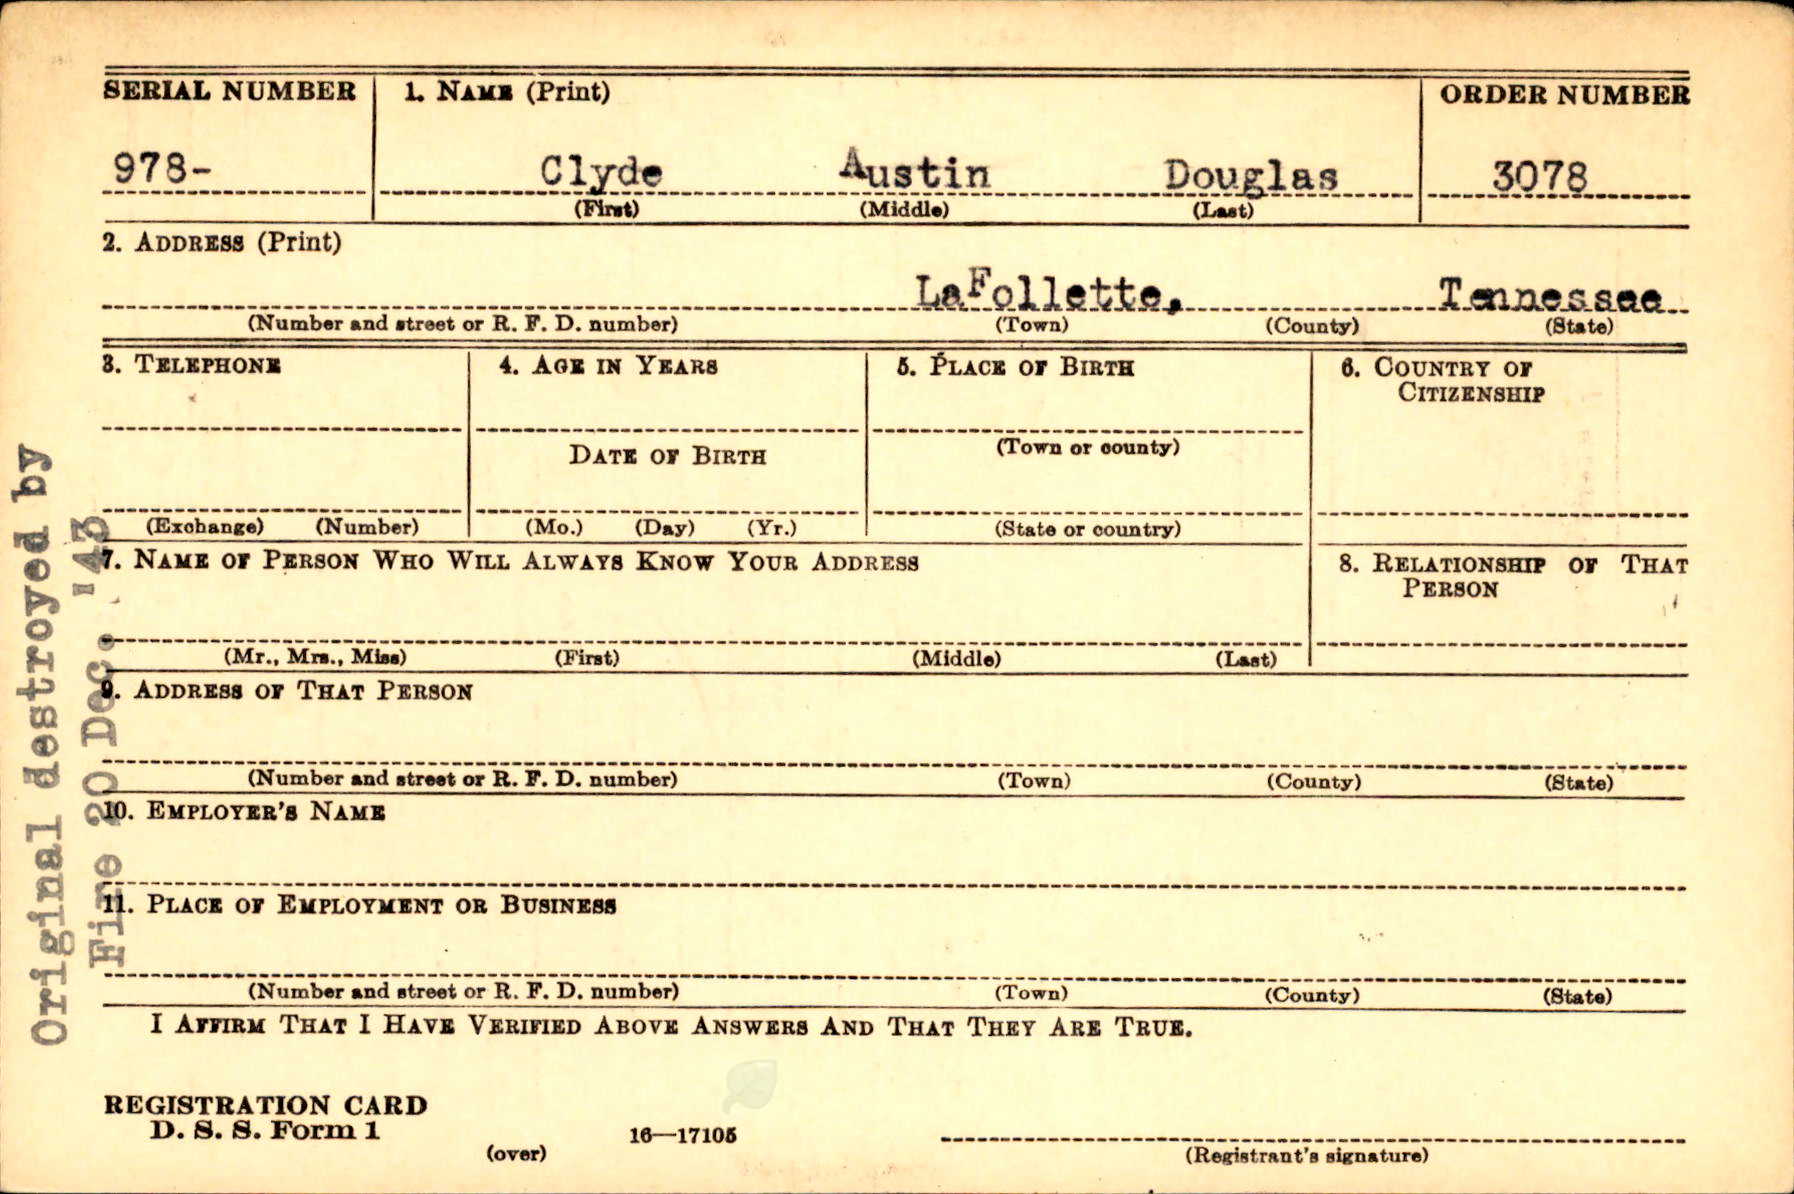 SERIAL NUMBER 1. NAME (Print) ORDER NUMBER
978- Clyde Austin Douglas 3078
(First) (Middle) (Last)
2. ADDRESS (Print)
LaFollette, Tennessee
(Number and street or R. F. D. number) (Town) (County) (State)
3. TELEPHONE 4. AGE IN YEARS 5. PLACE OF BIRTH 6. COUNTRY OF
CITIZENSHIP
DATE OF BIRTH (Town or county)
(Exchange) (Number) (Mo.) (Day) (Yr.) (State or country)
7. NAME OF PERSON WHO WILL ALWAYS KNOW YOUR ADDRESS 8. RELATIONSHIP OF THAT
PERSON
(Mr., Mrs., Miss) (First) (Middle) (Last)
9. ADDRESS OF THAT PERSON
(Number and street or R. F. D. number) (Town) (County) (State)
10. EMPLOYER'S NAME
11. PLACE OF EMPLOYMENT OR BUSINESS
(Number and street or R. F. D. number) (Town) (County) (State)
I AFFIRM THAT I HAVE VERIFIED ABOVE ANSWERS AND THAT THEY ARE TRUE.
REGISTRATION CARD
D. S. S. Form 1 16—17105
(over) (Registrant's signature)
Original destroyed by
Fire 20 Dec. '43